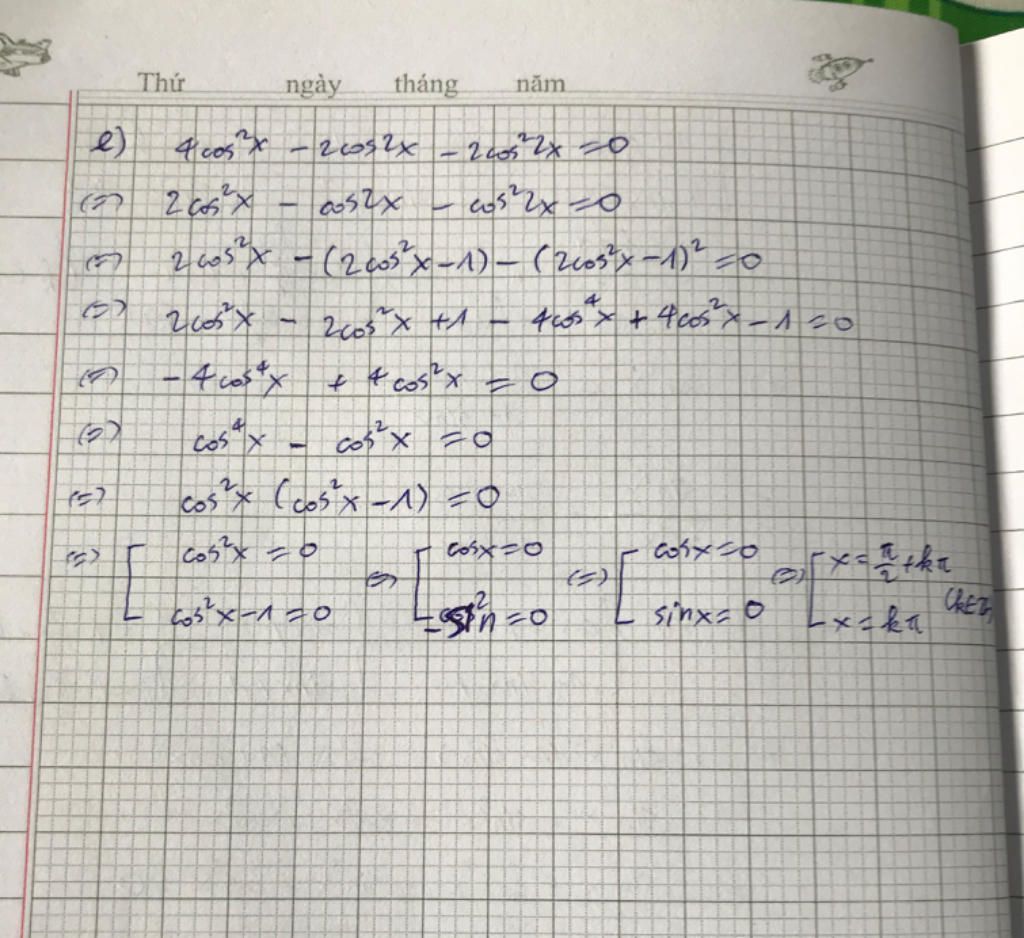 Thứ ngày tháng năm
e) 4cos²x - 2cos2x - 2cos²2x = 0
(=) 2cos²x - cos2x - cos²2x = 0
(=) 2cos²x - (2cos²x - 1) - (2cos²x - 1)² = 0
(=) 2cos²x - 2cos²x + 1 - 4cos⁴x + 4cos²x - 1 = 0
(=) - 4cos⁴x + 4cos²x = 0
(=) cos⁴x - cos²x = 0
(=) cos²x (cos²x - 1) = 0
(=) [ cos²x = 0 (=) [ cosx = 0 (=) [ cosx = 0 (=) [ x = π/2 + kπ
cos²x - 1 = 0 - sin² = 0 sinx = 0 x = kπ (k∈Z)